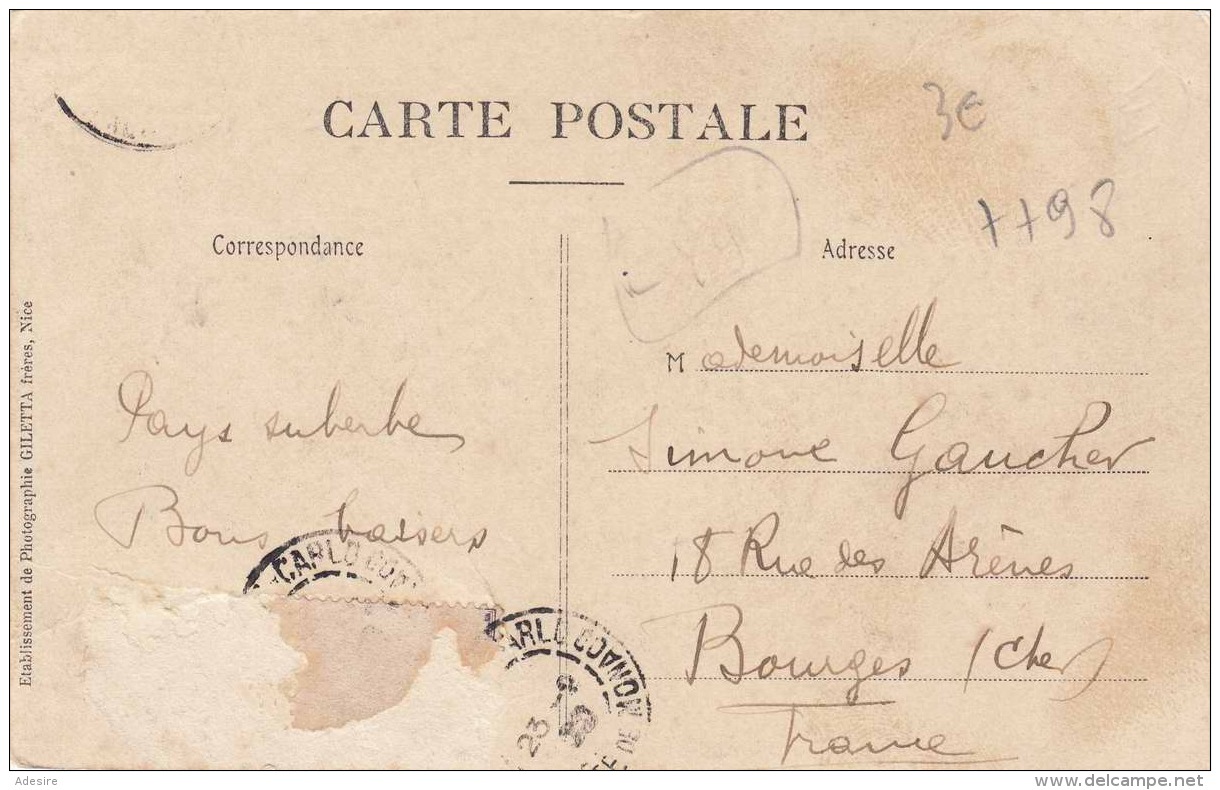 CARTE POSTALE
3€
7798
Correspondance
Adresse
Etablissement de Photographie GILETTA frères, Nice
Pays suberbe
Bons baisers
Mademoiselle
Simone Gaucher
18 Rue des Arènes
Bourges (Cher)
France
CARLO
CARLO
MONACO
23
DE
Adesire
www.delcampe.net